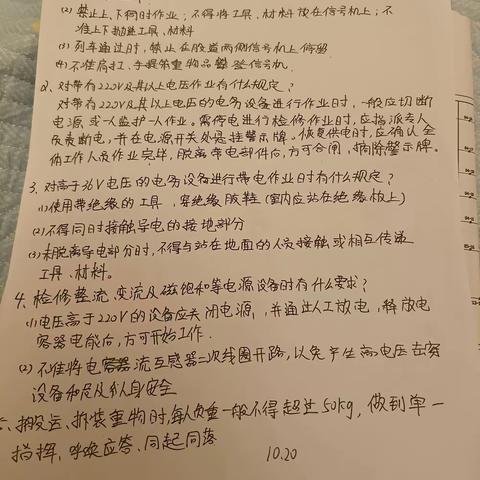 (2) 禁止上、下同时作业;不得将工具、材料放在信号机上;不
准上下抛递工具、材料
(3) 列车通过时,禁止在股道两侧信号机上停留
(4) 不准肩扛、手提笨重物品攀登信号机
2、对带有220V及其以上电压作业有什么规定?
对带有220V及其以上电压的电务设备进行作业时,一般应切断
电源或一人监护一人作业。需停电进行检修作业时,应指派专人
负责断电,并在电源开关处悬挂警示牌。恢复供电时,应确认全
体工作人员作业完毕,脱离带电部件后,方可合闸,摘除警示牌。
3、对高于36V电压的电务设备进行带电作业时有什么规定?
(1)使用带绝缘的工具,穿绝缘胶鞋(室内应站在绝缘板上)
(2)不得同时接触导电的接地部分
(3)未脱离导电部分时,不得与站在地面的人员接触或相互传递
工具、材料。
4、检修整流、变流及磁饱和等电源设备时有什么要求?
(1)电压高于220V的设备应关闭电源,并通过人工放电,释放电
容器电能后,方可开始工作.
(2)不准将电流互感器二次线圈开路,以免产生高电压击穿
设备和危及人身安全
五、搬运、拆装重物时,每人负重一般不得超过50kg,做到单一
指挥,呼唤应答、同起同落
10.20